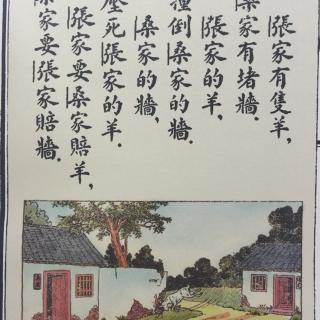 張家有隻羊，
桑家有堵牆．
張家的羊，
撞倒桑家的牆．
桑家的牆，
壓死張家的羊．
張家要桑家賠羊，
桑家要張家賠牆．